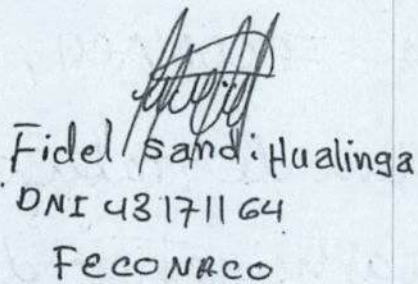 Fidel Sandi Hualinga
DNI 43171164
FECONACO